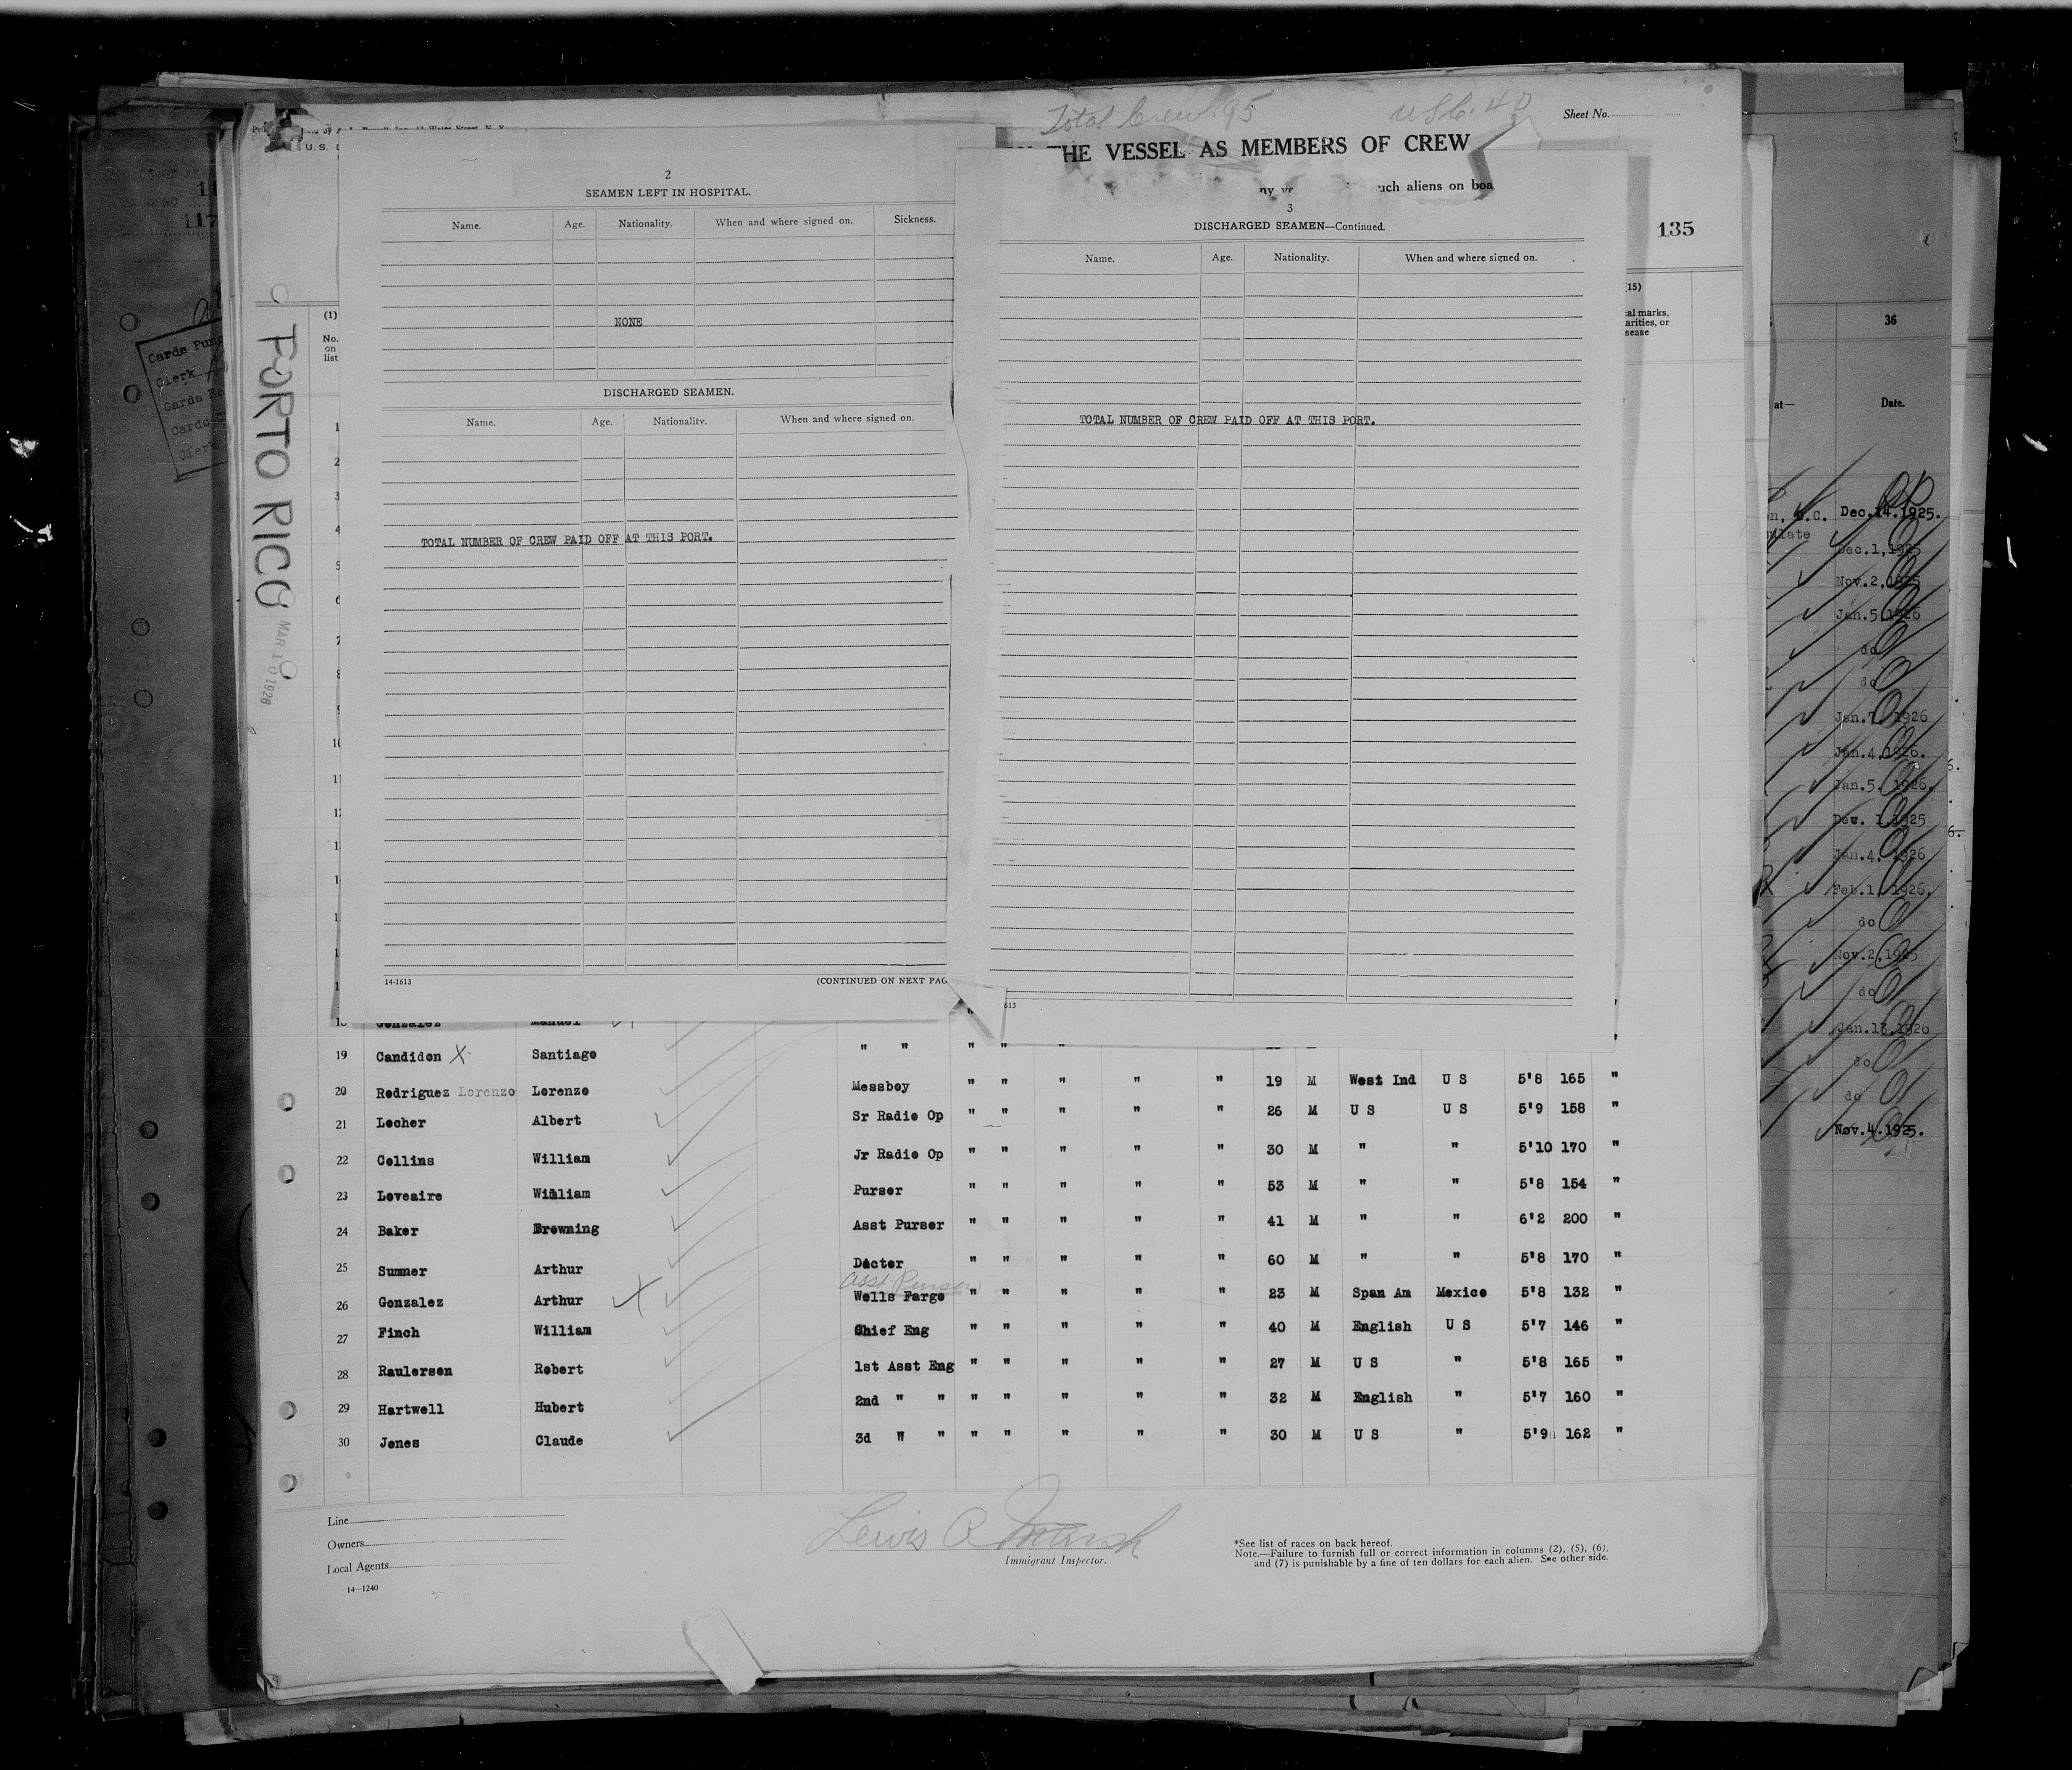 Total Crew. 95
USC. 40
Sheet No.
THE VESSEL AS MEMBERS OF CREW
uch aliens on boa
135
U.S.
2
SEAMEN LEFT IN HOSPITAL.
Name. Age. Nationality. When and where signed on. Sickness.
NONE
DISCHARGED SEAMEN.
Name. Age. Nationality. When and where signed on.
TOTAL NUMBER OF CREW PAID OFF AT THIS PORT.
14-1613
(CONTINUED ON NEXT PAG
3
DISCHARGED SEAMEN—Continued.
Name. Age. Nationality. When and where signed on.
TOTAL NUMBER OF CREW PAID OFF AT THIS PORT.
613
PORTO RICO
MAR 10 1926
(1)
No.
on
list
1
2
3
4
5
6
7
8
9
10
11
12
(15)
al marks,
arities, or
sease
18 Gonzalez Manuel
19 Candidon X Santiago " " " " "
20 Rodriguez Lorenzo Lorenzo Messboy " " " " " 19 M West Ind U S 5'8 165 "
21 Locher Albert Sr Radio Op " " " " " 26 M U S U S 5'9 158 "
22 Collins William Jr Radio Op " " " " " 30 M " " 5'10 170 "
23 Loveaire William Purser " " " " " 53 M " " 5'8 154 "
24 Baker Browning Asst Purser " " " " " 41 M " " 6'2 200 "
25 Sumner Arthur Doctor " " " " " 60 M " " 5'8 170 "
Asst Purser
26 Gonzalez Arthur X Wells Fargo " " " " " 23 M Span Am Mexico 5'8 132 "
27 Finch William Chief Eng " " " " " 40 M English U S 5'7 146 "
28 Raulerson Robert 1st Asst Eng " " " " " 27 M U S " 5'8 165 "
29 Hartwell Hubert 2nd " " " " " " " 32 M English " 5'7 160 "
30 Jones Claude 3d " " " " " " " 30 M U S " 5'9 162 "
Line
Owners
Local Agents
14—1240
Lewis A Marsh
Immigrant Inspector.
*See list of races on back hereof.
Note.—Failure to furnish full or correct information in columns (2), (5), (6),
and (7) is punishable by a fine of ten dollars for each alien. See other side.
11
117
Cards Punc
Clerk
Cards Re
Cards
Clerk
36
at—
Date.
n, D.C. Dec.14.1925.
ulate
Dec.1,1925
Nov.2,1925
Jan.5,1926
do
do
Jan.7, 1926
Jan.4,1926.
Jan.5, 1926.
Dec. 1,1925
Jan.4, 1926
Feb.1, 1926.
do
Nov.2,1925
do
Jan.13,1926
do
do
Nov.4.1925.
6.
6.